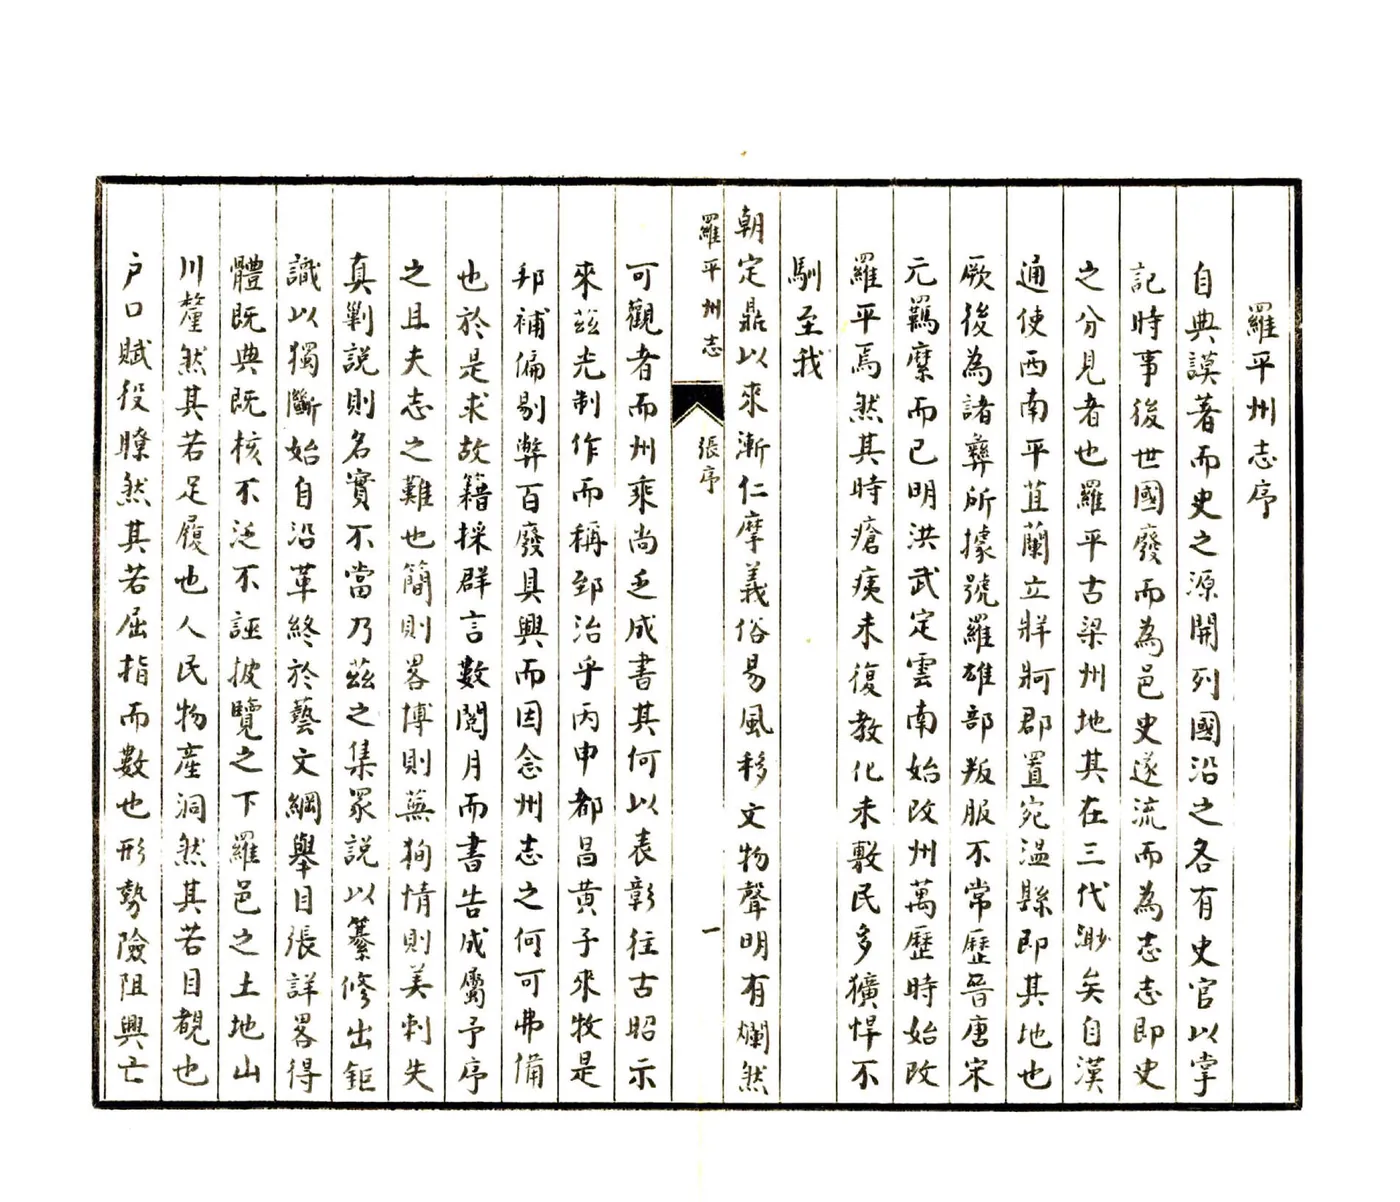 羅平州志序
自典謨著而史之源開列國沿之各有史官以掌
記時事後世國廢而為邑史遂流而為志志即史
之分見者也羅平古梁州地其在三代渺矣自漢
通使西南平苴蘭立牂牁郡置宛温縣即其地也
厥後為諸彝所據號羅雄部叛服不常歷晉唐宋
元羈縻而已明洪武定雲南始改州萬歷時始改
羅平焉然其時瘡痍未復教化未敷民多獷悍不
馴至我
朝定鼎以來漸仁摩義俗易風移文物聲明有爛然
羅平州志
張序
一
可觀者而州乘尚乏成書其何以表彰往古昭示
來茲光制作而稱郅治乎丙申都昌黄子來牧是
邦補偏剔弊百廢具興而因念州志之何可弗備
也於是求故籍採群言數閲月而書告成屬予序
之且夫志之難也簡則畧博則蕪狥情則美刺失
真剿説則名實不當乃茲之集眾説以纂修出鉅
識以獨斷始自沿革終於藝文綱舉目張詳畧得
體既典既核不泛不誣披覽之下羅邑之土地山
川釐然其若足履也人民物產洞然其若目覩也
户口賦役瞭然其若屈指而數也形勢險阻興亡